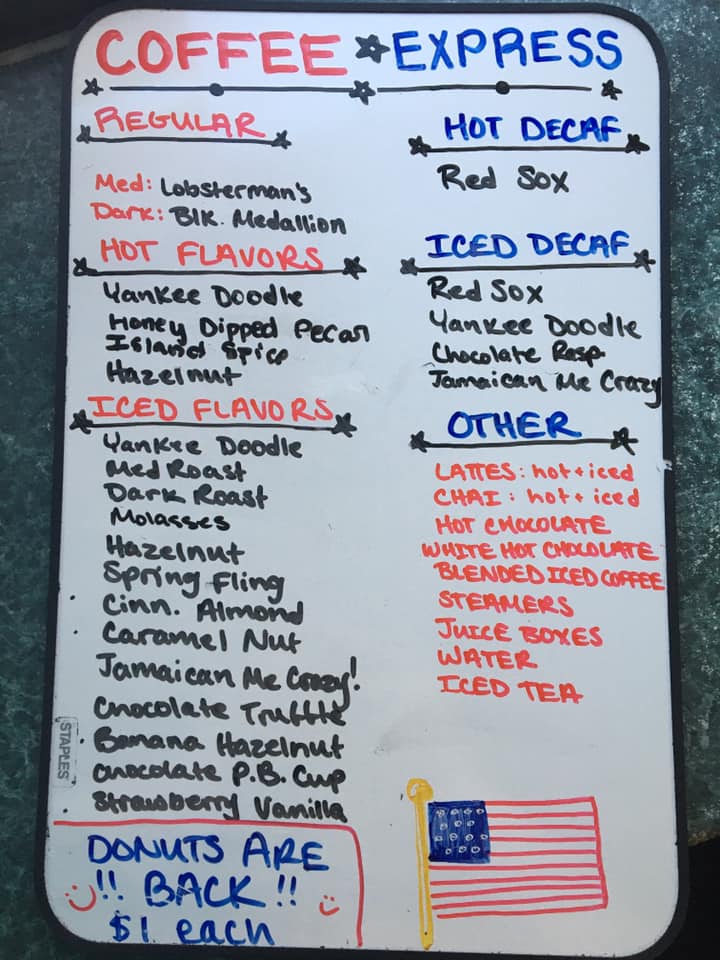 COFFEE ★ EXPRESS
REGULAR
Med: Lobsterman's
Dark: Blk. Medallion
HOT FLAVORS
Yankee Doodle
Honey Dipped Pecan
Island Spice
Hazelnut
ICED FLAVORS
Yankee Doodle
Med Roast
Dark Roast
Molasses
Hazelnut
Spring Fling
Cinn. Almond
Caramel Nut
Jamaican Me Crazy!
Chocolate Truffle
Banana Hazelnut
Chocolate P.B. Cup
Strawberry Vanilla
DONUTS ARE
!! BACK !!
$1 each
HOT DECAF
Red Sox
ICED DECAF
Red Sox
Yankee Doodle
Chocolate Rasp
Jamaican Me Crazy
OTHER
LATTES: hot + iced
CHAI: hot + iced
HOT CHOCOLATE
WHITE HOT CHOCOLATE
BLENDED ICED COFFEE
STEAMERS
JUICE BOXES
WATER
ICED TEA
STAPLES